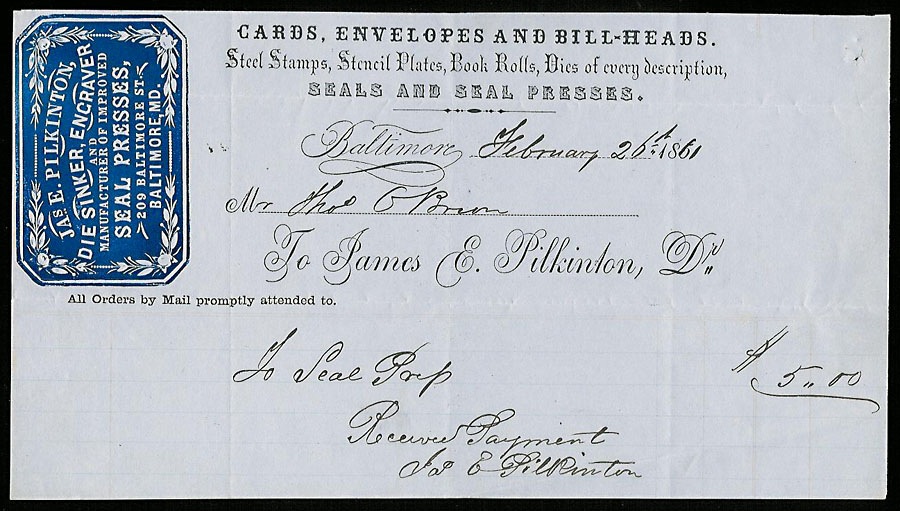 JAS. E. PILKINTON,
DIE SINKER, ENGRAVER
AND
MANUFACTURER OF IMPROVED
SEAL PRESSES,
209 BALTIMORE ST.
BALTIMORE, MD.
CARDS, ENVELOPES AND BILL-HEADS.
Steel Stamps, Stencil Plates, Book Rolls, Dies of every description,
SEALS AND SEAL PRESSES.
Baltimore February 26th 1861
Mr Thos O Brien
To James E. Pilkinton, Dr.
All Orders by Mail promptly attended to.
To Seal Press $ 5.00
Received Payment
Jas E Pilkinton